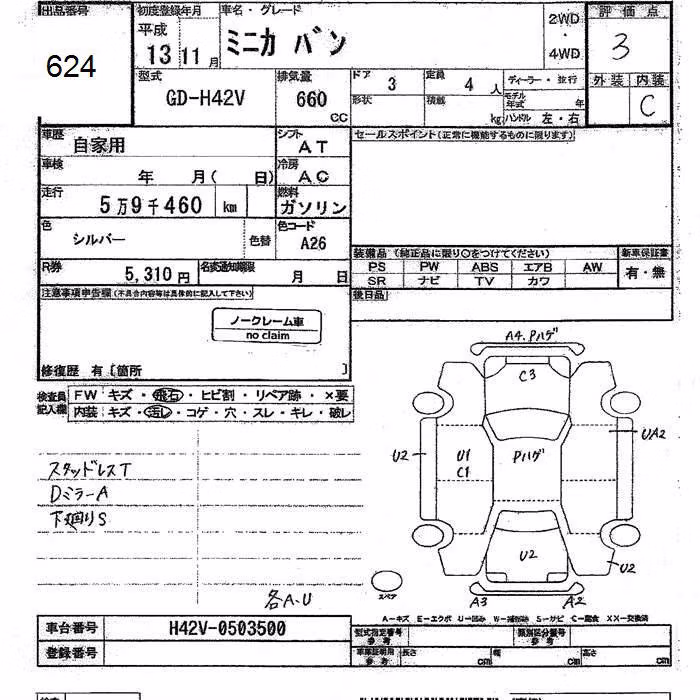 出品番号 初度登録年月 車名・グレード 2WD ・ 4WD 評価点
624 平成 13 11月 ミニカ バン 3
外装 内装
C
型式 排気量 ドア 3 定員 4 人 ディーラー・並行
GD-H42V 660 CC 形状 積載 kg モデル年式 年
ハンドル 左・右
車歴 自家用 シフト AT セールスポイント(正常に機能するものに限ります)
車検 年 月( 日) 冷房 AC
走行 5万9千460 km 燃料 ガソリン
色 シルバー 色替 色コード A26
装備品(純正品に限り○をつけてください) 新車保証書
PS PW ABS エアB AW 有・無
SR ナビ TV カワ
R券 5,310円 名変通知期限 月 日
後日品
注意事項申告欄(不具合内容等は具体的に記入して下さい)
ノークレーム車
no claim
修復歴 有〔箇所 〕
検査員記入欄 FW キズ・飛石・ヒビ割・リペア跡・×要
内装 キズ・汚レ・コゲ・穴・スレ・キレ・破レ
A4.Pハゲ
C3
UA2
U2 U1 Pハゲ
C1
スタッドレスT
DミラーA
下廻りS
U2
U2
スペア
A3 A2
各A-U
A=キズ E=エクボ U=凹み W=補修跡 S=サビ C=腐食 XX=交換済
車台番号 H42V-0503500 型式指定番号 参考 類別区分番号 参考
登録番号 車庫証明用 参考 長さ cm 幅 cm 高さ cm